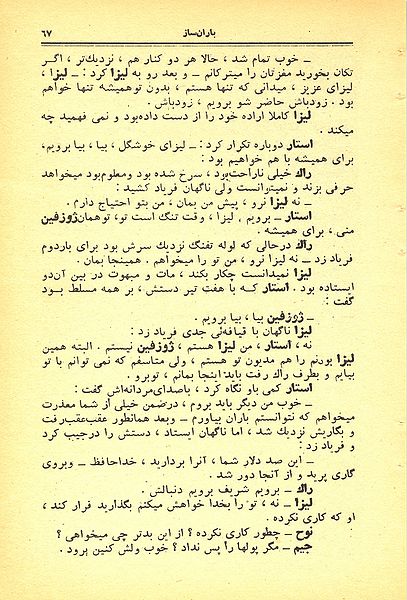 باران‌ساز
۶۷
ــ خوب تمام شد ، حالا هر دو کنار هم ، نزدیک‌تر ، اگر
تکان بخورید مغزتان را میترکانم ــ و بعد رو به لیزا کرد : ــ لیزا ،
لیزای عزیز ، میدانی که تنها هستم ، بدون تو همیشه تنها خواهم
بود . زودباش حاضر شو برویم ، زودباش .
لیزا کاملا اراده خود را از دست داده‌بود و نمی فهمید چه
میکند .
استار دوباره تکرار کرد : ــ لیزای خوشگل ، بیا ، بیا برویم،
برای همیشه با هم خواهیم بود :
راك خیلی ناراحت‌بود ، سرخ شده بود ومعلوم‌بود میخواهد
حرفی بزند و نمیتوانست ولی ناگهان فریاد کشید :
ــ نه لیزا نرو ، پیش من بمان ، من بتو احتیاج دارم .
استار ــ برویم ، لیزا ، وقت تنگ است تو، توهمان‌ژوزفین
منی ، برای همیشه .
راك درحالی که لوله تفنگ نزدیك سرش بود برای باردوم
فریاد زد ــ نه لیزا نرو ، من تو را میخواهم . همینجا بمان .
لیزا نمیدانست چکار بکند ، مات و مبهوت در بین آن‌دو
ایستاده بود . استار که با هفت تیر دستش ، بر همه مسلط بود
گفت :
ــ ژوزفین بیا ، بیا برویم .
لیزا ناگهان با قیافه‌ئی جدی فریاد زد :
نه ، استار ، من لیزا هستم ، ژوزفین نیستم . البته همین
لیزا بودنم را هم مدیون تو هستم ، ولی متاسفم که نمی توانم با تو
بیایم و بطرف راك رفت باید اینجا بمانم ، توبرو .
استار کمی باو نگاه کرد ، باصدای‌مردانه‌اش گفت :
ــ خوب من دیگر باید بروم ، درضمن خیلی از شما معذرت
میخواهم که نتوانستم باران بیاورم ــ وبعد همانطور عقب‌عقب‌رفت
و بگاریش نزدیك شد ، اما ناگهان ایستاد ، دستش را درجیب کرد
و فریاد زد :
ــ این صد دلار شما ، آنرا بردارید ، خداحافظ ــ وبروی
گاری پرید و از آنجا دور شد .
راك ــ برویم شریف برویم دنبالش .
لیزا ــ نه ، تو را بخدا خواهش میکنم بگذارید فرار کند ،
او که کاری نکرده .
نوح ــ چطور کاری نکرده ؟ از این بدتر چی میخواهی ؟
جیم ــ مگر پولها را پس نداد ؟ خوب ولش کنین برود .